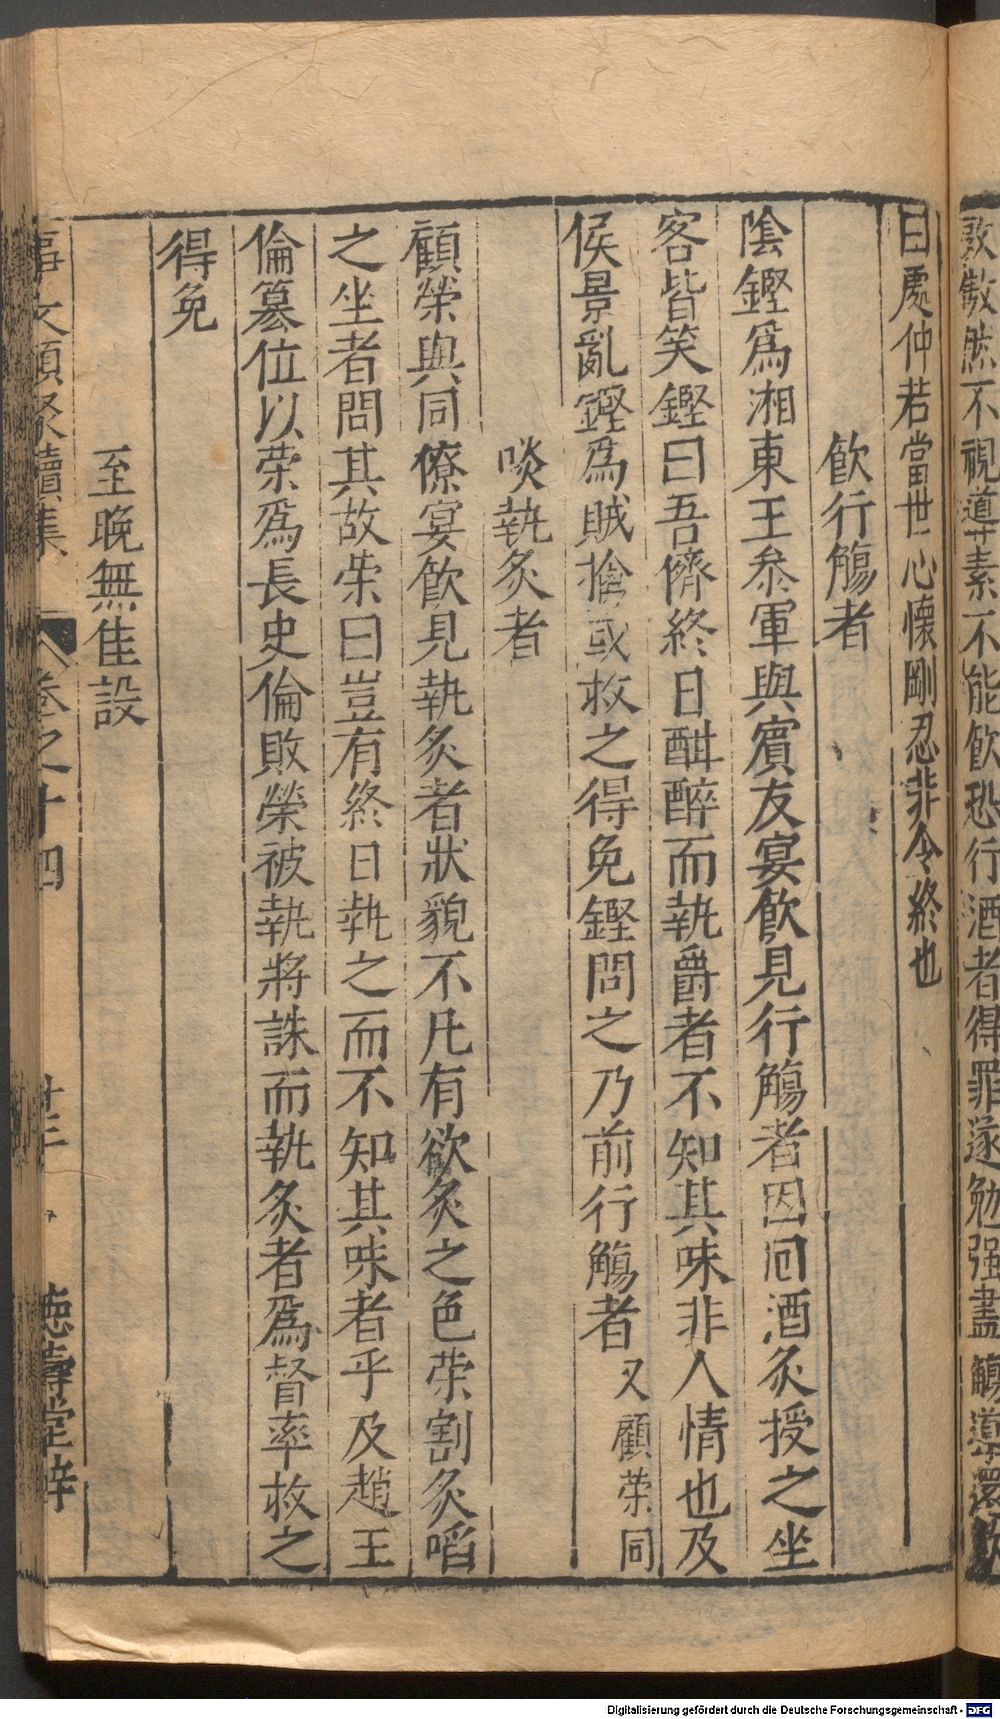 敦傲然不視導素不能飲恐行酒者得罪遂勉强盡觴導還
曰處仲若當世心懷剛忍非令終也
飲行觴者
陰鏗爲湘東王叅軍與賓友宴飲見行觴者因囘酒炙授之坐
客皆笑鏗曰吾儕終日酣醉而執爵者不知其味非人情也及
侯景亂鏗爲賊擒或救之得免鏗問之乃前行觴者又顧荣同
啖執炙者
顧榮與同僚宴飲見執炙者狀貌不凡有欲炙之色荣割炙啗
之坐者問其故荣曰豈有終日執之而不知其味者乎及趙王
倫篡位以荣爲長史倫敗榮被執將誅而執炙者爲督率救之
得免
至晚無佳設
事文類聚續集 卷之十四 廿三 德壽堂梓
Digitalisierung gefördert durch die Deutsche Forschungsgemeinschaft - DFG